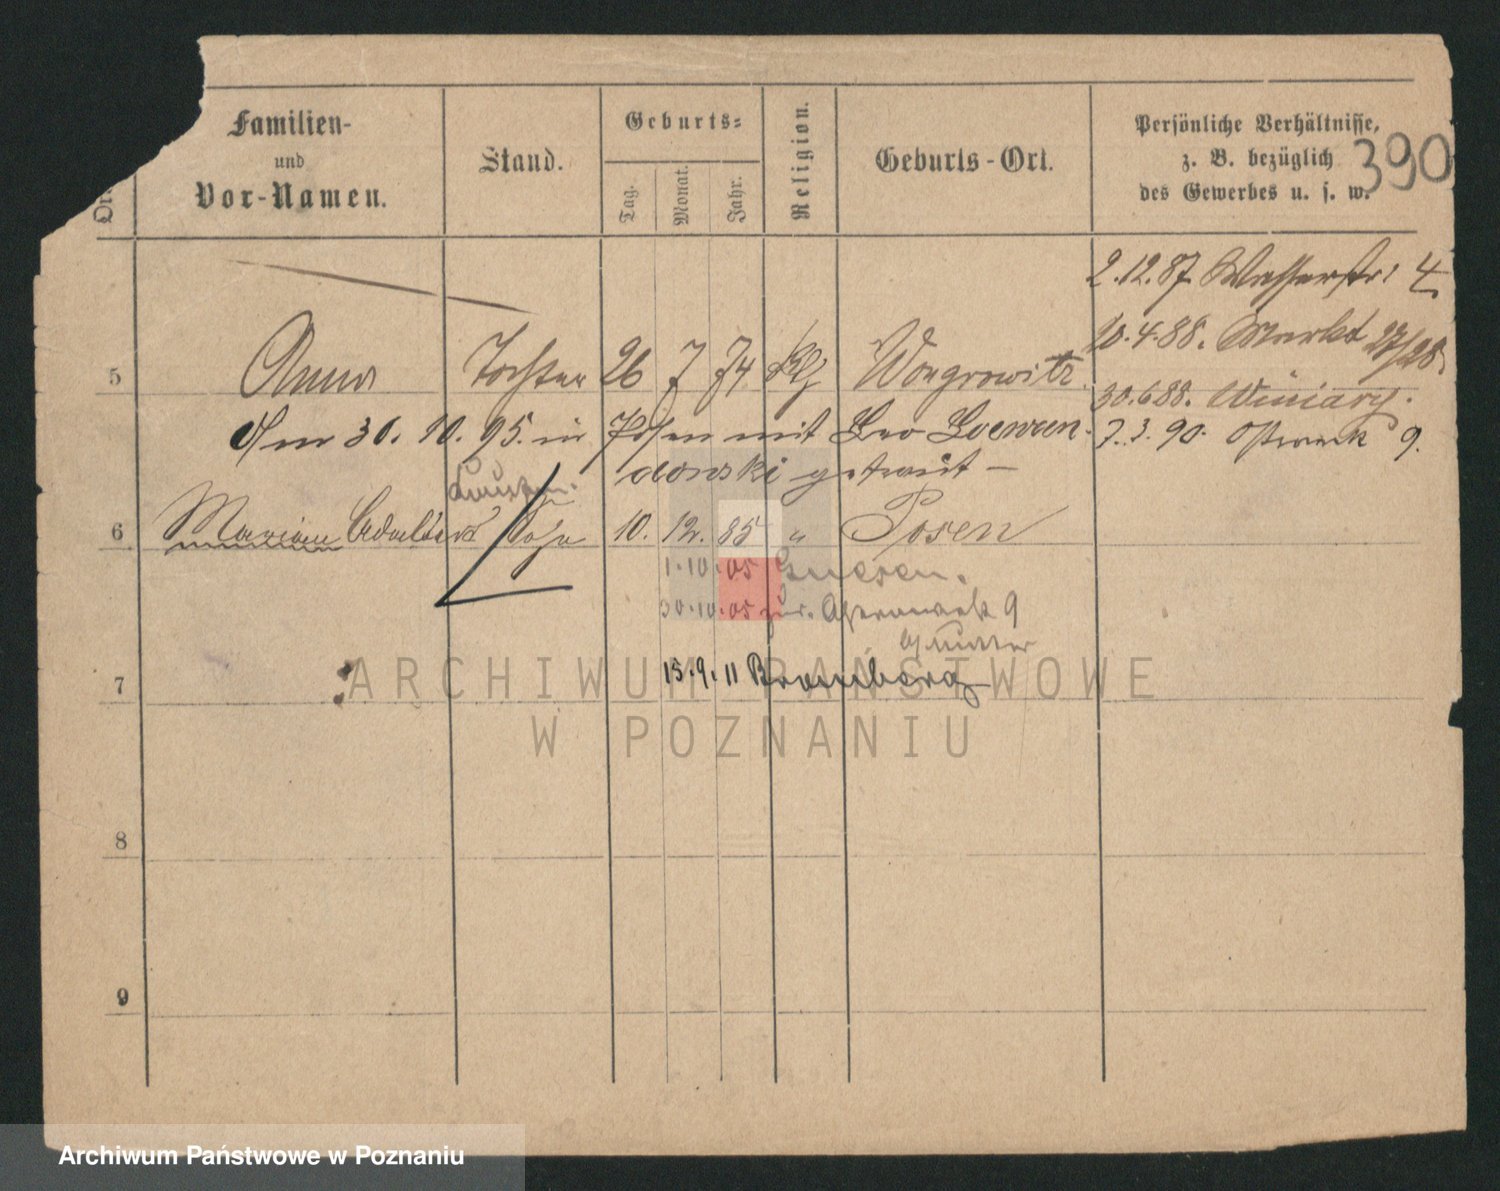 Familien- und Vor-Namen.
Stand.
Geburts=
Tag.
Monat.
Jahr.
Religion.
Geburts-Ort.
Persönliche Verhältnisse,
z. B. bezüglich
des Gewerbes u. s. w.
390
2.12.87. Wasserstr: 4
10.4.88. Markt 27/28
5 Anna Tochter 26 7 74 Wongrowitz
30.6.88. Winiary.
Am 30. 10. 95. in Posen mit Leo Loewen-
7.3.90. 9.
donski getraut —
6 Marian Adalbert Sohn 10. 12. 85 " Posen
1.10.05 Gnesen.
30.10.05 zur. 9
Mutter
7 15.9.11 Bromberg
8
9
ARCHIWUM PAŃSTWOWE
W POZNANIU
Archiwum Państwowe w Poznaniu